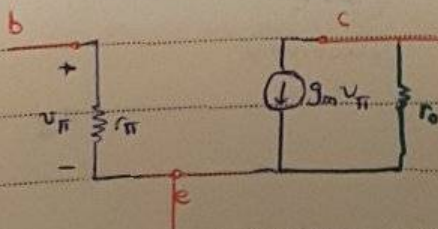 b
c
+
vπ rπ
gm vπ
ro
-
e